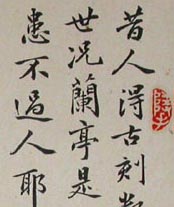 昔人得古刻數
世况蘭亭是
患不過人耶